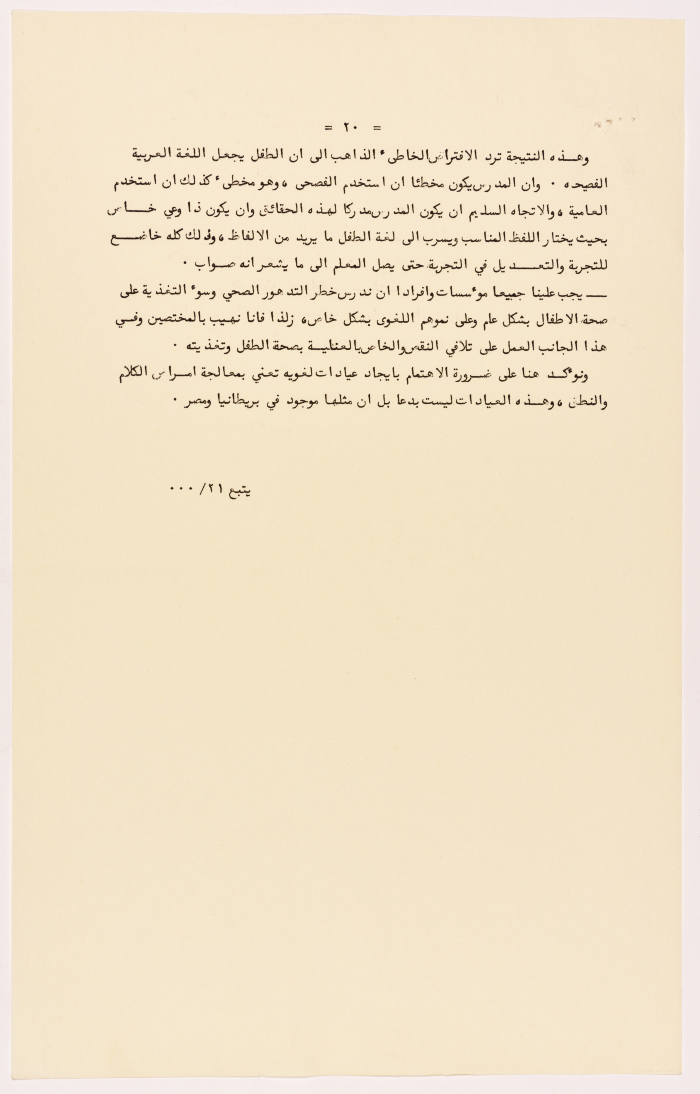 = ٢٠ =
وهـــذه النتيجة ترد الافتراض الخاطىء الذاهب الى ان الطفل يجعل اللغة العربية
الفصيحه . وان المدرس يكون مخطئا ان استخدم الفصحى ، وهو مخطىء كذلك ان استخدم
العامية ، والاتجاه السليم ان يكون المدرس مدركا لهذه الحقائق وان يكون ذا وعي خـــاص
بحيث يختار اللفظ المناسب ويسرب الى لغة الطفل ما يريد من الالفاظ ، وذلك كله خاضــع
للتجربة والتعــــديل في التجربة حتى يصل المعلم الى ما يشعر انه صــواب .
ـــ يجب علينا جميعا موءسسات وافرادا ان ندرس خطر التدهور الصحي وسوء التغذية على
صحة الاطفال بشكل عام وعلى نموهم اللغوى بشكل خاص ، زلذا فانا نهيب بالمختصين وفــي
هذا الجانب العمل على تلافي النقص والخاص بالعنايــة بصحة الطفل وتغذيته .
ونوءكــد هنا على ضــرورة الاهتمام بايجاد عيادات لغويه تعني بمعالجة امــراض الكلام
والنطق ، وهـــذه العيادات ليست بدعا بل ان مثلها موجود في بريطانيا ومصر .
يتبع ٢١/ ...